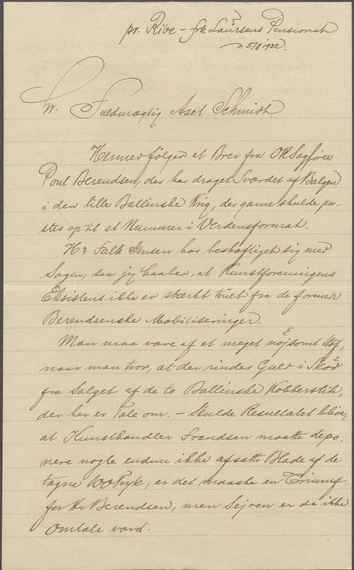 pr. Ribe – frk Laursens Pensionat
Hr. Fuldmægtig Axel Schmidt
Hermed følger et Brev fra ORSagfører
Poul Berendsen, der har draget Sværdet af Balgen
i den lille Ballinske Krig, der gerne skulde pu-
stes op til et Nummer i Verdensformat.
Hr Falk Jensen har beskæftiget sig med
Sagen, saa jeg haaber, at Kunstforeningens
Eksistens ikke er stærkt truet fra de formen
Berendsenske Mobiliseringer.
Man maa være af et meget nøjsomt
naar man tror, at der rinder Guld i
fra Salget af de to Ballinske Kobberstik,
der her er Tale om. – Skulde Resultatet blive,
at Kunsthandler Svendsen maatte depo-
nere nogle endnu ikke afsatte Blade af de
tagne, er det maaske en Triumf
for Hr Berendsen, men Sejren er da ikke
Omtale værd.